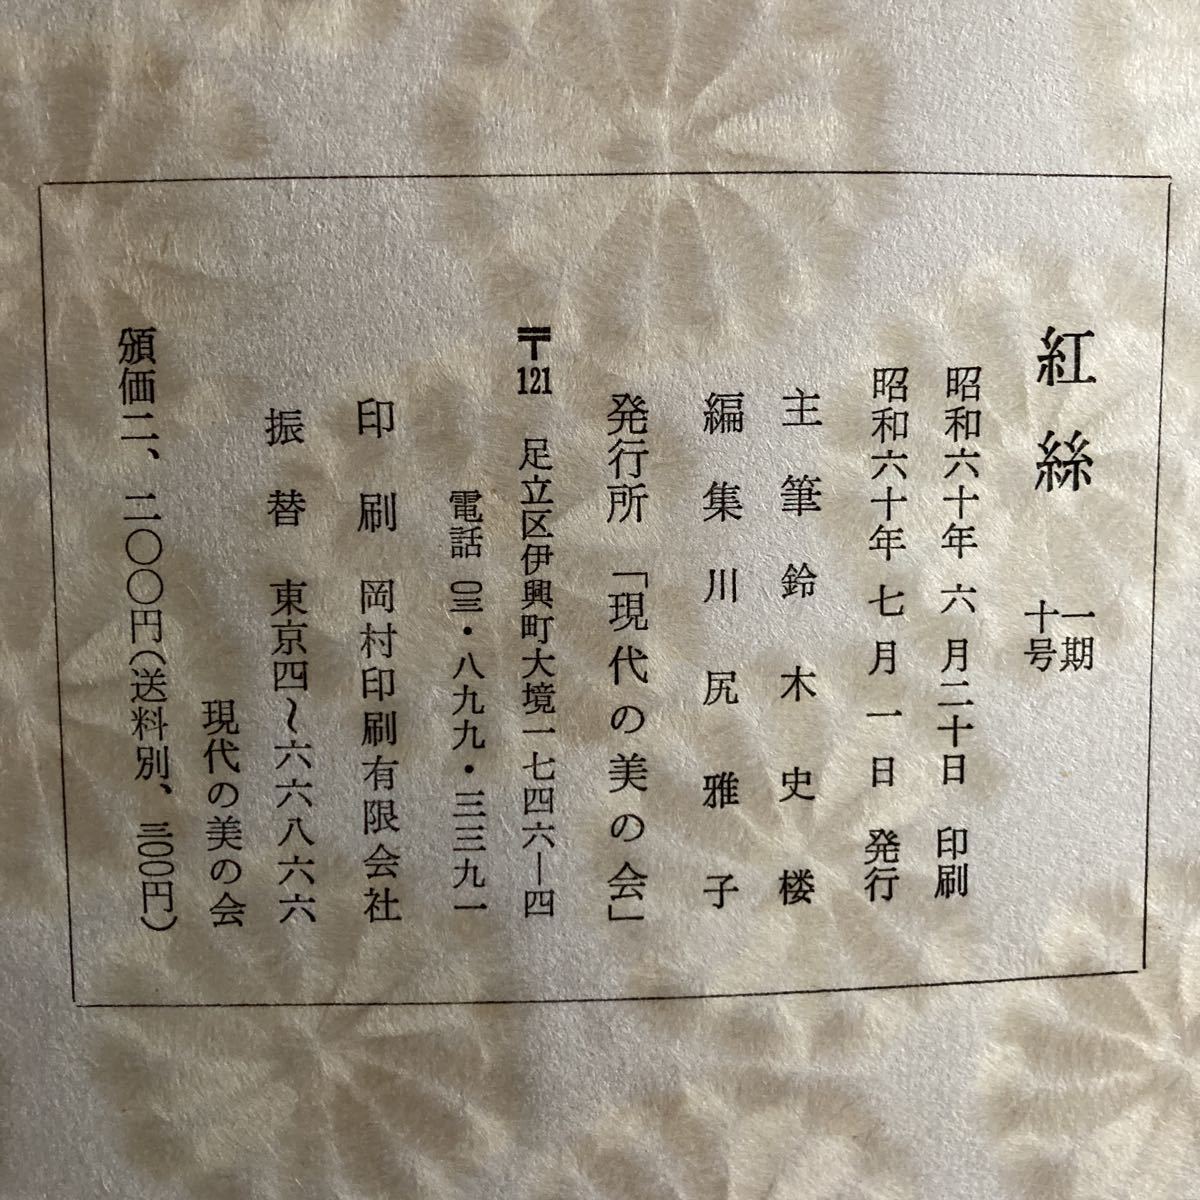 紅絲 一期
十号
昭和六十年六月二十日 印刷
昭和六十年七月一日 発行
主筆 鈴木史楼
編集 川尻雅子
発行所「現代の美の会」
〒121 足立区伊興町大境一七四六―四
電話 〇三・八九九・三三九一
印刷 岡村印刷有限会社
振替 東京四〜六六八六六
現代の美の会
頒価二、二〇〇円(送料別、三〇〇円)